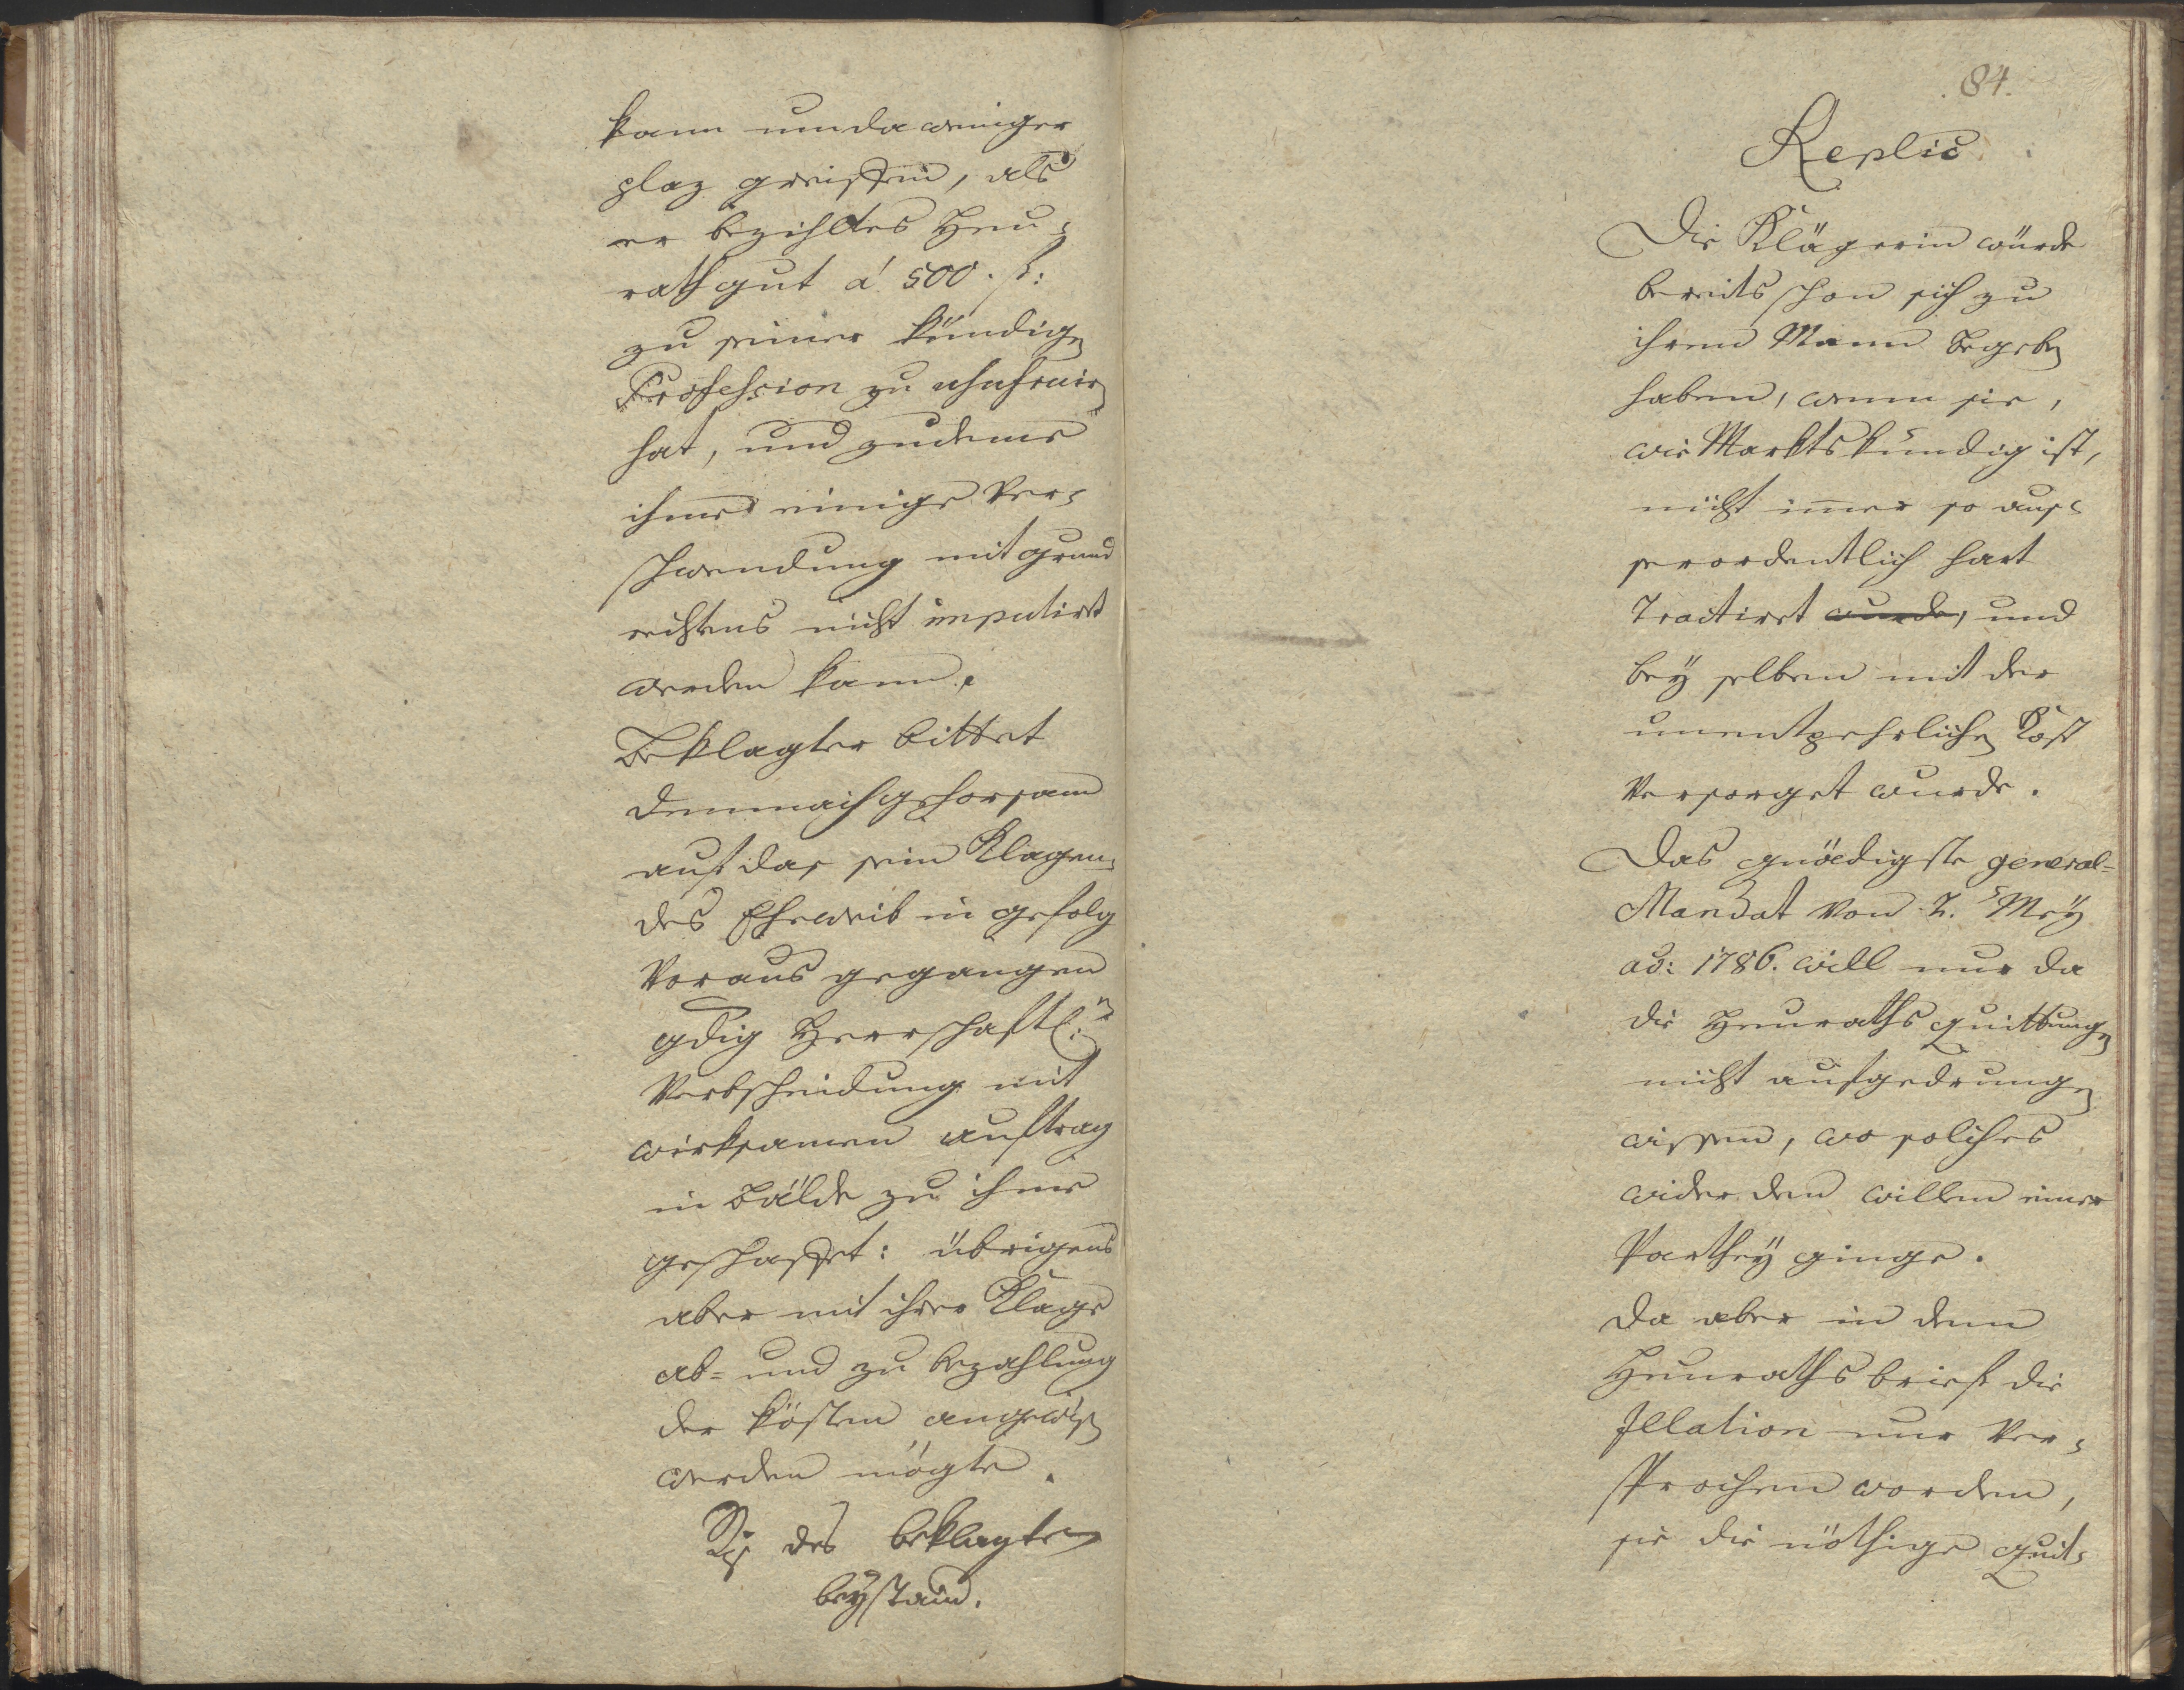 kann umda weniger
plaz greiffen, als
er bezihltes Heu-
rathgut á 500. f:
zu seiner kündigen
Profession zu usufruir
hat, und zudeme
ihme einige Ver-
schwendung mit grund
rechtens nicht imputirt
werden kann.
Beklagter bittet
demnach gehorsam
auf das sein Klagen-
des Eheweib in gefolg
Voraus gegangen
gdig Herrschaftl:n
Verbscheidung mit
wirksamen auftrag
in Bälde zu ihme
geschaffet: übrigens
aber mit ihrer Klage
ab- und zu bezahlung
der kösten angewisen
werden mögte.
des beklagten
beystand.
84.
Replic
Die Klägerin würde
bereits schon sich zu
ihrem Mann begeben
haben, wenn sie,
wie Marktskündig ist,
nicht immer so aus-
serordentlich hart
Tractiret wurde, und
bey selben mit der
unentpehrlichen Kost
Versorget wurde.
Das gnädigste general-
Mandat von 2. May
ao: 1786. will nur da
die Heuraths quittungen
nicht aufgedrungen
wissen, wo solches
wider den willen einer
Parthey ginge.
Da aber in dem
Heuraths brief die
Illation nur Ver-
sprochen worden,
sie die nöthige quit-